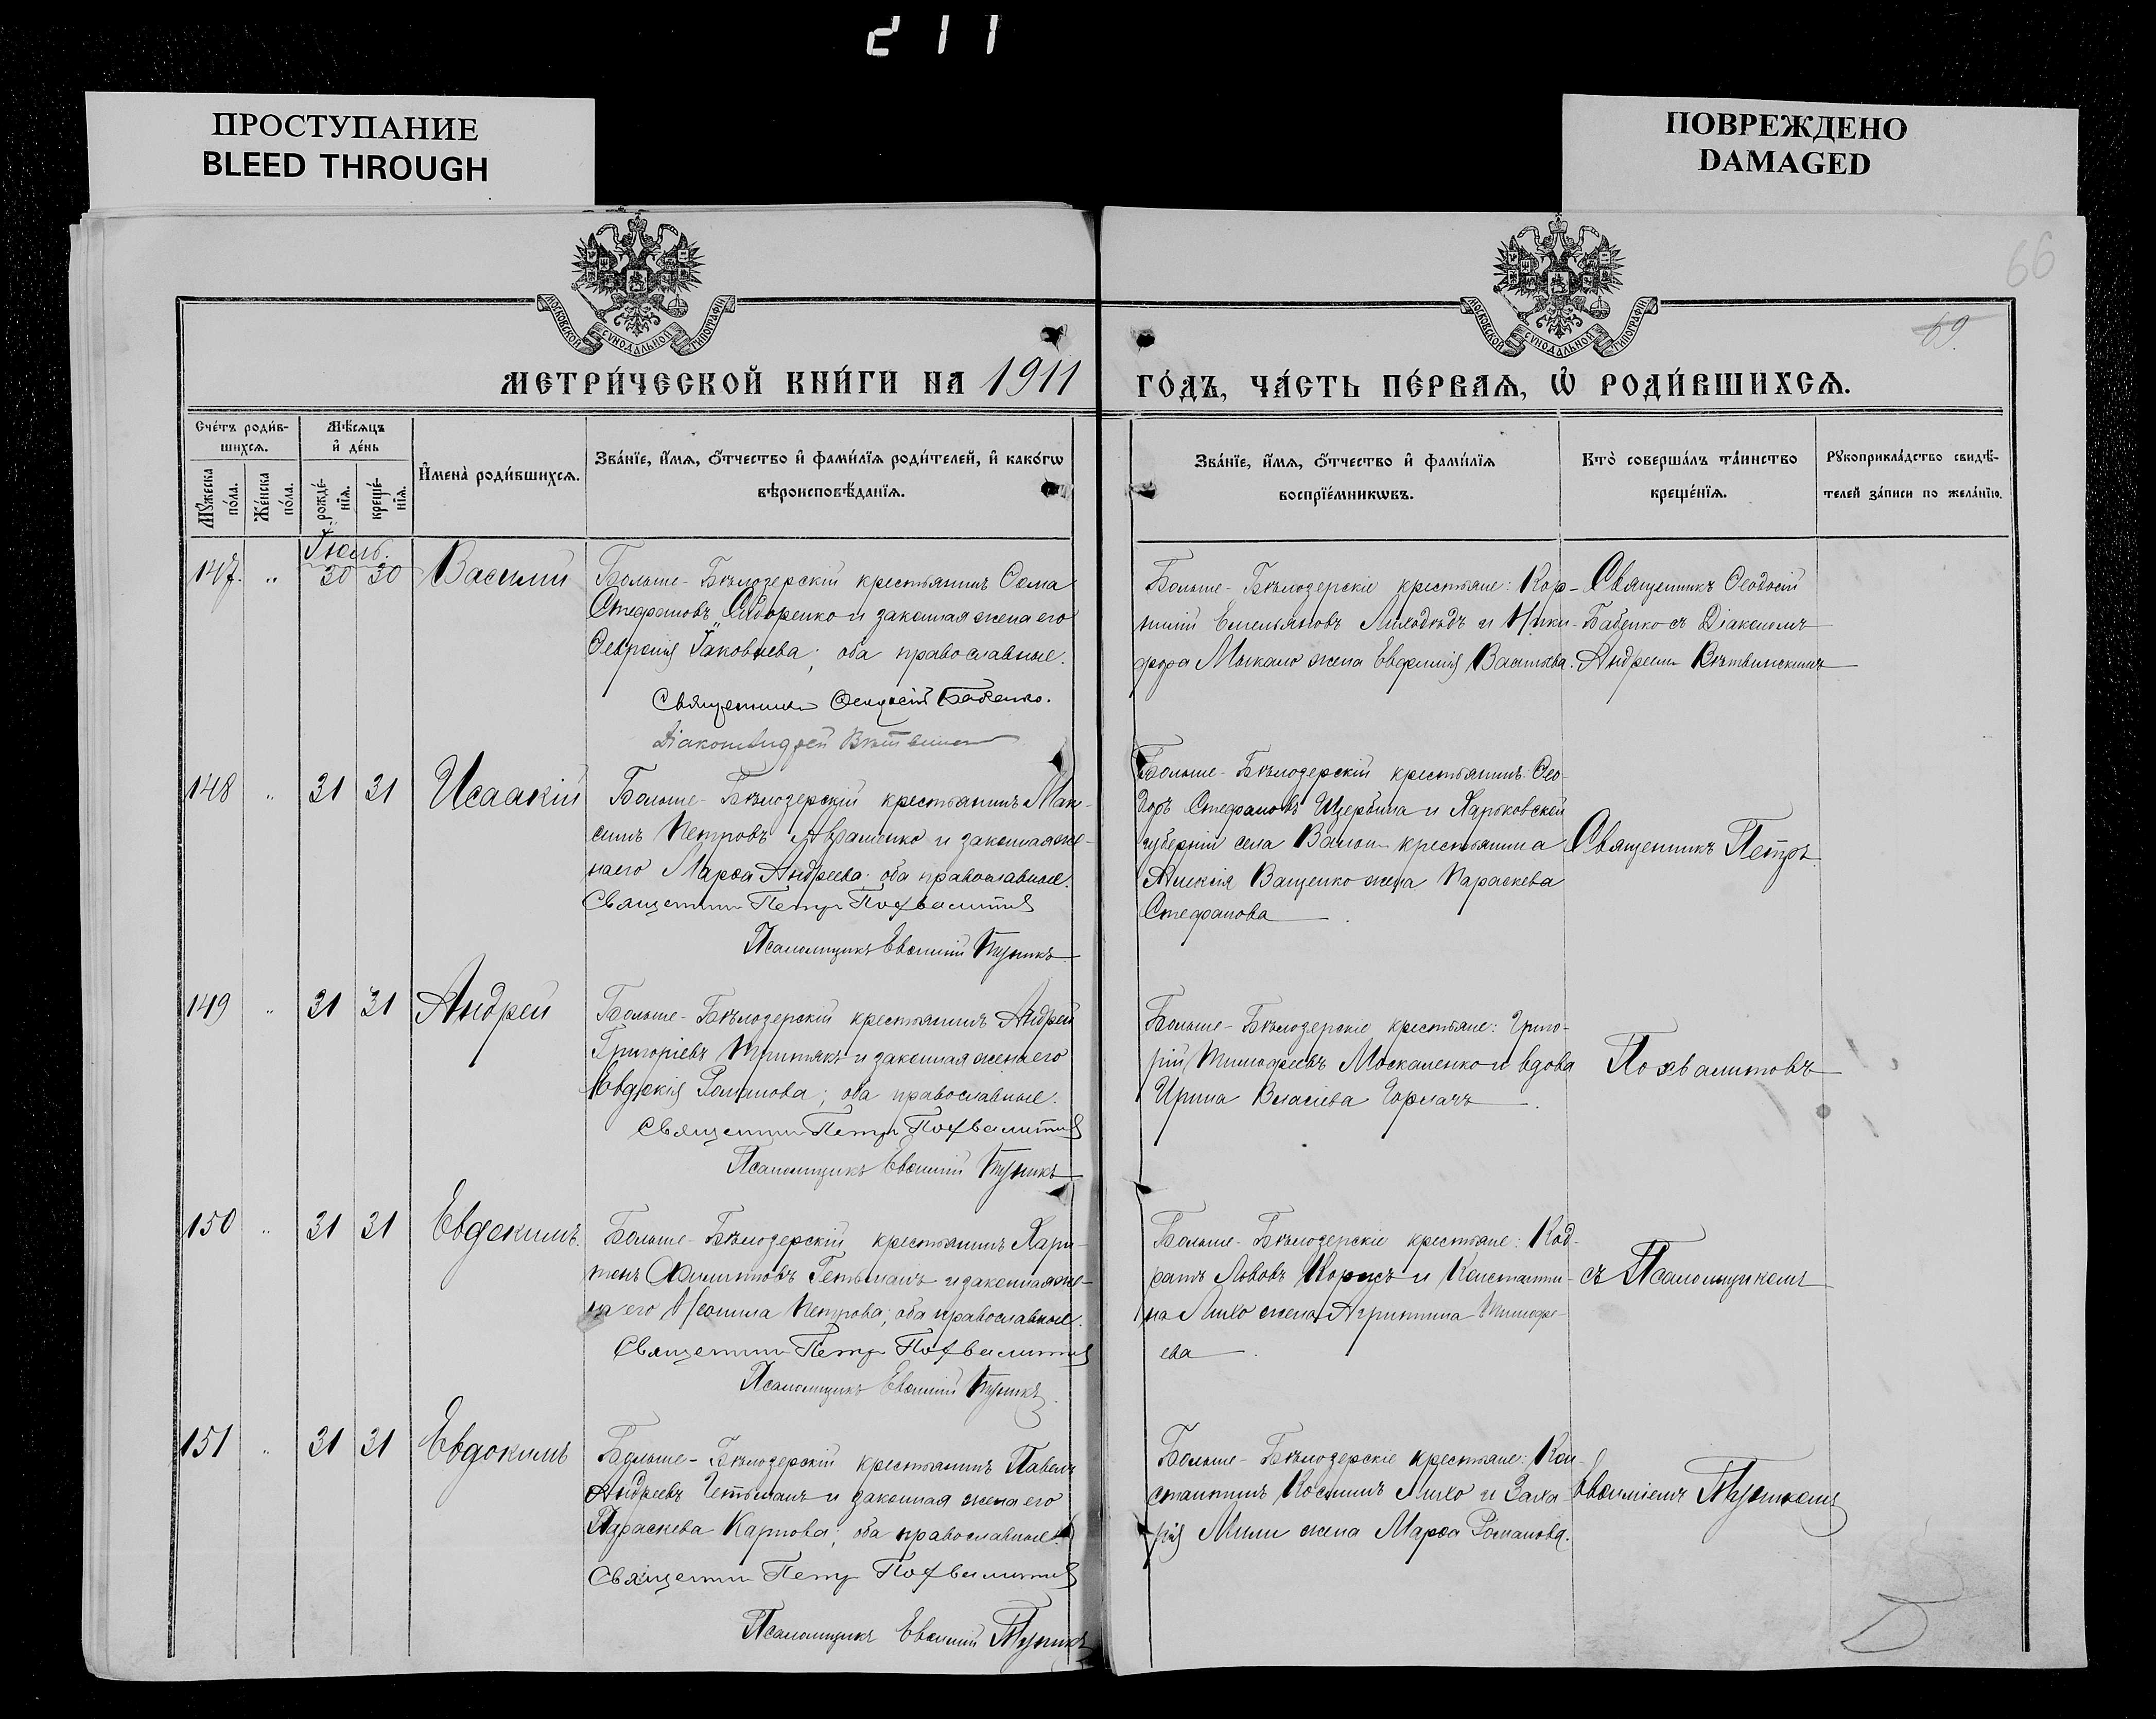 211
ПРОСТУПАНИЕ
BLEED THROUGH
ПОВРЕЖДЕНО
DAMAGED
66
69.
МОСКОВСКОЙ СѴНОДАЛЬНОЙ ТИПОГРАФІИ
МОСКОВСКОЙ СѴНОДАЛЬНОЙ ТИПОГРАФІИ
МЕТРИ́ЧЕСКОЙ КНИ́ГИ НА 1911
ГО́ДЪ, ЧА́СТЬ ПЕ́РВАѦ, Ѡ҆ РОДИ́ВШИХСѦ.
Сче́тъ роди́в-
шихсѧ.
Мѣ́сѧцъ
и҆ де́нь
Мꙋ́жеска по́ла.
Же́нска по́ла.
рожде́-
нїѧ.
креще́-
нїѧ.
И҆мена̀ роди́вшихсѧ.
Зва́нїе, и҆́мѧ, ѻ҆́тчество и҆ фами́лїѧ роди́телей, и҆ како́гѡ
вѣроисповѣ́данїѧ.
Зва́нїе, и҆́мѧ, ѻ҆́тчество и҆ фами́лїѧ
воспрїе́мникѡвъ.
Кто̀ соверша́лъ та́инство
креще́нїѧ.
Рꙋкоприкла́дство свидѣ́-
телей за́писи по жела́нїю.
Іюль.
147. " 30 30 Василій
Больше-Бѣлозерскій крестьянинъ Ѳома
Стефановъ Сидоренко и законная жена его
Ѳевронія Іаковлева; оба православные.
Священникъ Ѳеодосій Бабенко.
Діаконъ Андрей Вѣтвинскій
Больше-Бѣлозерскіе крестьяне: Кор-
нилій Емельяновъ Лиходѣдъ и Ники-
фора Мыкало жена Евфимія Васильева.
Священникъ Ѳеодосій
Бабенко съ Діакономъ
Андреемъ Вѣтвинскимъ
148 " 31 31 Исаакій
Больше-Бѣлозерскій крестьянинъ Мак-
симъ Петровъ Авраменко и законная же-
на его Марѳа Андреева; оба православные.
Священникъ Петръ Похвалитовъ
Псаломщикъ Евѳимій Тупикъ
Больше-Бѣлозерскій крестьянинъ: Ѳео-
доръ Стефановъ Щербина и Харьковской
губерніи села крестьянина
Алексія Ващенко жена Параскева
Стефанова.
Священникъ Петръ
149 " 31 31 Андрей
Больше-Бѣлозерскій крестьянинъ Андрей
Григоріевъ и законная жена его
Евдокія Романова; оба православные.
Священникъ Петръ Похвалитовъ
Псаломщикъ Евѳимій Тупикъ
Больше-Бѣлозерскіе крестьяне: Григо-
рій Тимофеевъ Москаленко и вдова
Ирина Власіева Горлачъ.
Похвалитовъ
150 " 31 31 Евдокимъ.
Больше-Бѣлозерскій крестьянинъ Хари-
тонъ Филипповъ Гетьманъ и законная же-
на его Неонила Петрова; оба православные.
Священникъ Петръ Похвалитовъ
Псаломщикъ Евѳимій Тупикъ.
Больше-Бѣлозерскіе крестьяне: Код-
ратъ Львовъ и Константи-
на Лихо жена Агриппина Тимофе-
ева.
съ Псаломщикомъ
151 " 31 31 Евдокимъ
Больше-Бѣлозерскій крестьянинъ Павелъ
Андреевъ Гетьманъ и законная жена его
Параскева Карпова; оба православные.
Священникъ Петръ Похвалитовъ
Псаломщикъ Евѳимій Тупикъ
Больше-Бѣлозерскіе крестьяне: Кон-
стантинъ Косминъ Лихо и Заха-
рія жена Марѳа Романова.
Евѳиміемъ Тупикомъ